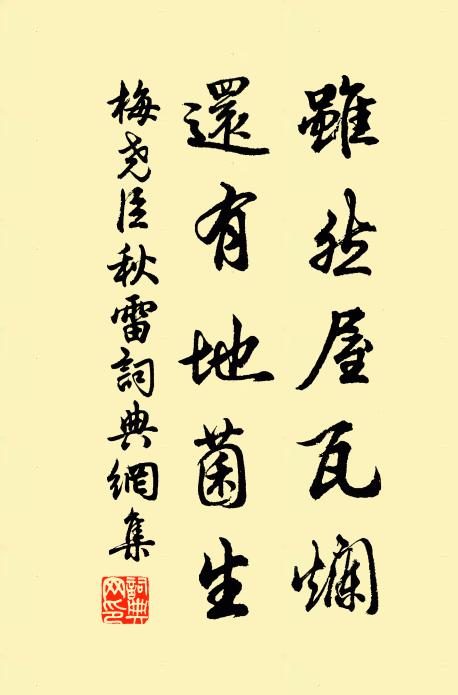 雖然屋瓦爛
還有地菌生
梅尧臣秋雷詞典網集
詞典網印